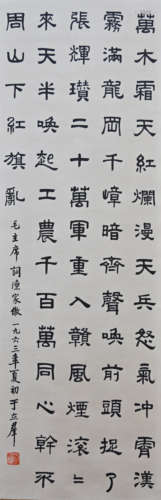 萬木霜天紅爛漫天兵怒氣冲霄漢
霧滿龍岡千嶂暗齊聲喚前頭捉了
張輝瓚二十萬軍重入贛風煙滾滾
來天半喚起工農千百萬同心幹不
周山下紅旗亂
毛主席詞漁家傲一九六三年夏初于立羣